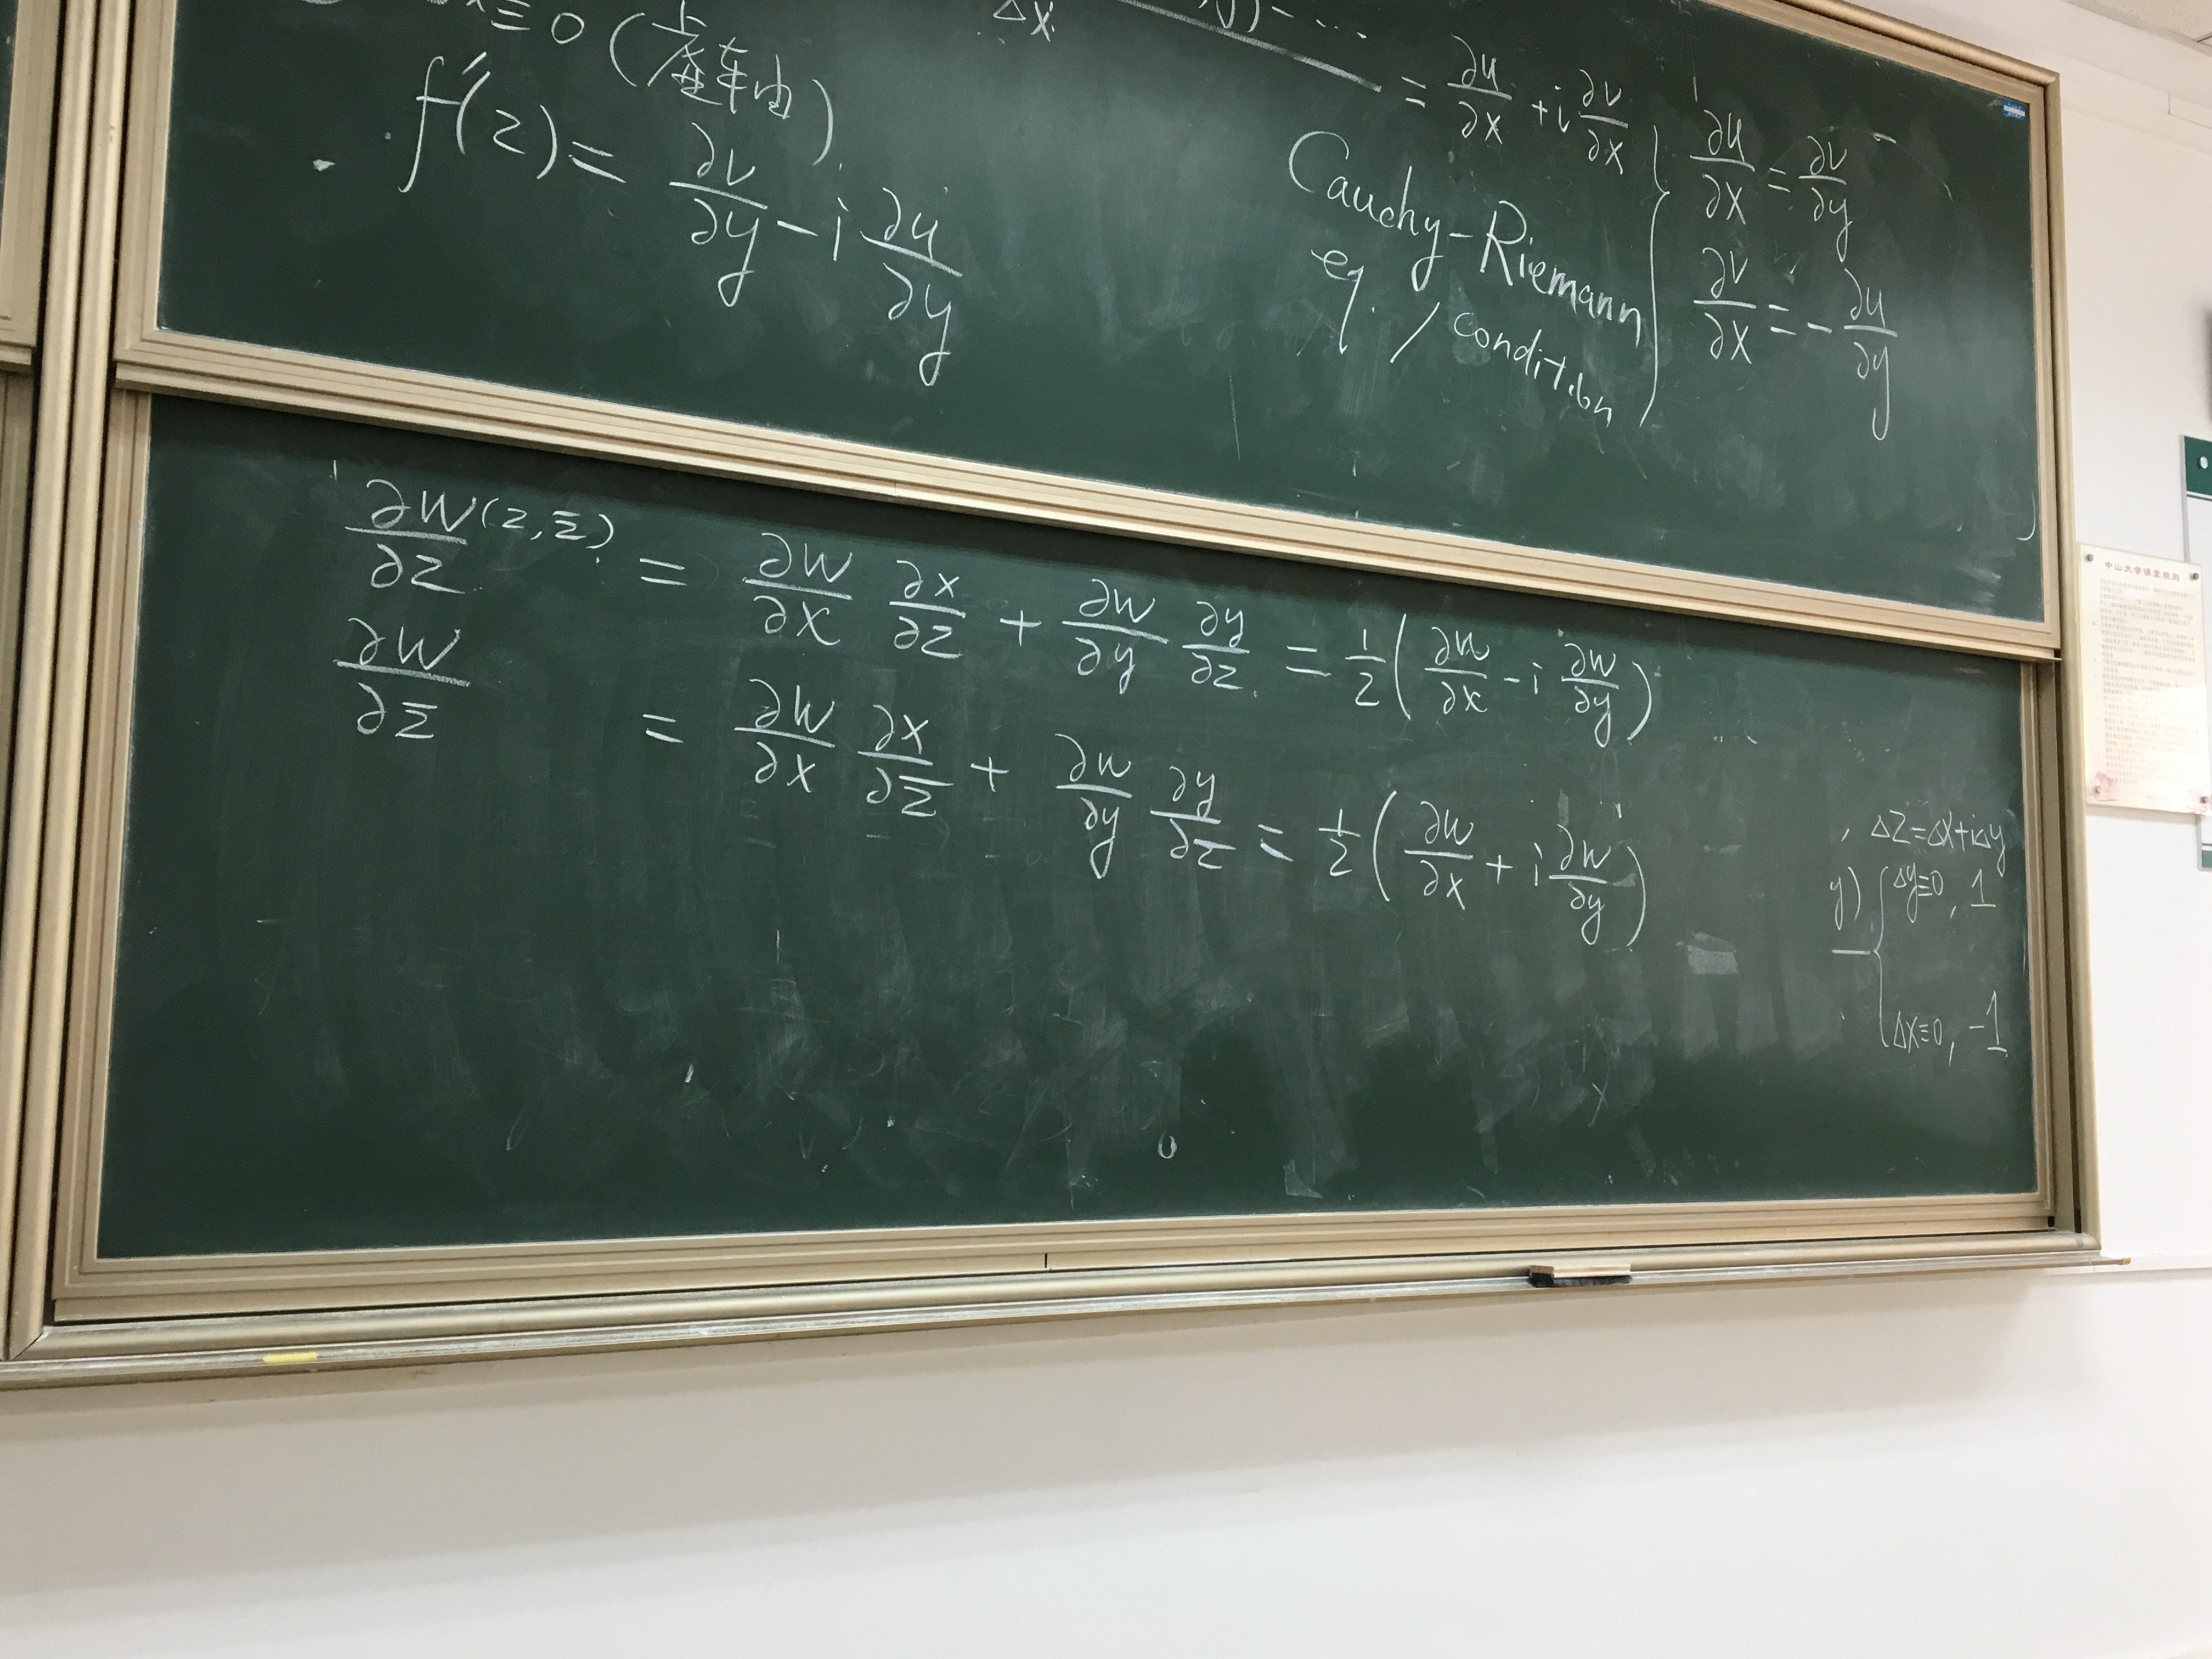 ≡0 (虚轴)
Δx
= ∂u/∂x + i ∂v/∂x
f'(z) = ∂v/∂y - i ∂u/∂y
Cauchy-Riemann
eq. / condition
∂u/∂x = ∂v/∂y
∂v/∂x = - ∂u/∂y
∂w(z,z̄)/∂z = ∂w/∂x ∂x/∂z + ∂w/∂y ∂y/∂z = 1/2 ( ∂w/∂x - i ∂w/∂y )
∂w/∂z̄ = ∂w/∂x ∂x/∂z̄ + ∂w/∂y ∂y/∂z̄ = 1/2 ( ∂w/∂x + i ∂w/∂y )
, Δz=Δx+iΔy
y) { Δy≡0, 1
Δx≡0, -1
中山大学课室规则